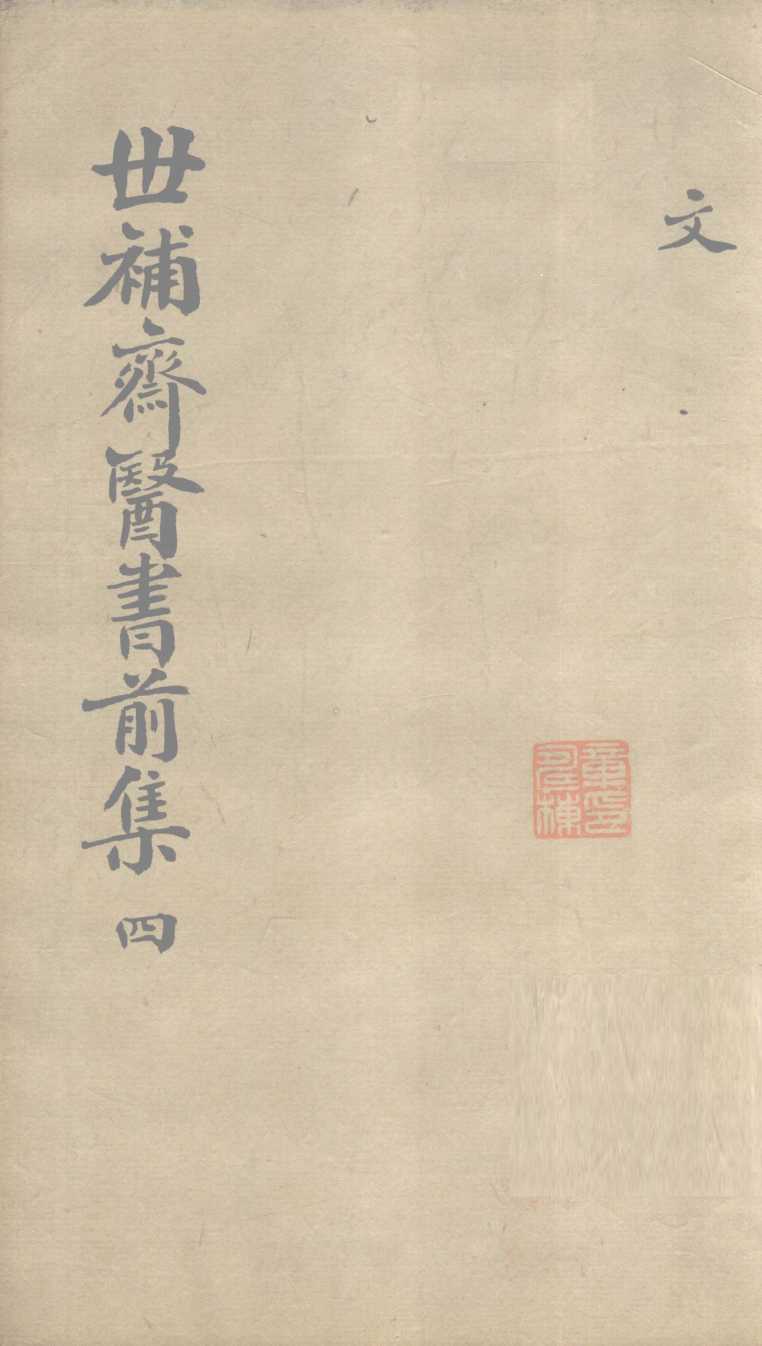 文
世補齋醫書前集 四